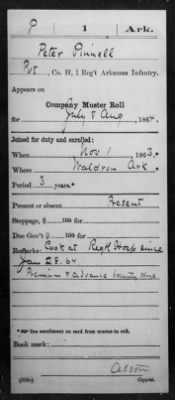 P 1 Ark.
Peter Pinnell
Pvt, Co. H, 1 Reg't Arkansas Infantry.
Appears on
Company Muster Roll
for July & Aug, 1864.
Joined for duty and enrolled:
When Nov 1, 1863.*
Where Waldron Ark.
Period 3 years.*
Present or absent Present
Stoppage, $ 100 for
Due Gov't $ 100 for
Remarks: Cook at Regt Hosp since
Jan 28. 64
Premium & advance bounty due
*See enrollment on card from muster-in roll.
Book mark:
(358c) Copyist.